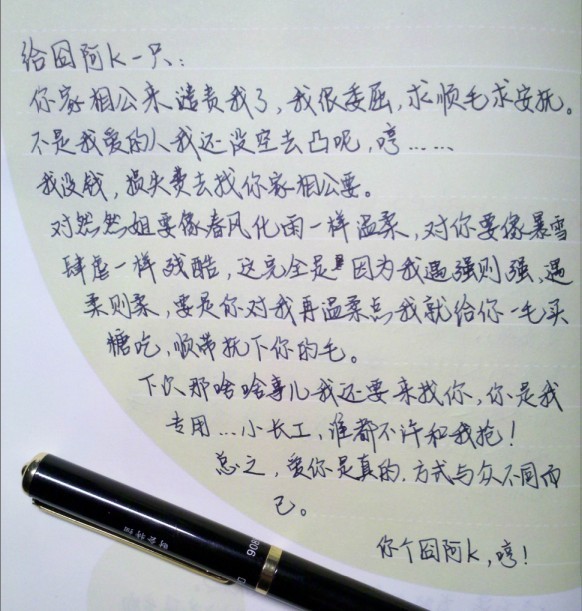 给囧阿K一只：
你家相公来谴责我了，我很委屈，求顺毛求安抚。
不是我爱的人我还没空去凸呢，哼……
我没钱，损失费去找你家相公要。
对然然姐要像春风化雨一样温柔，对你要像暴雪
肆虐一样残酷，这完全是因为我遇强则强，遇
柔则柔，要是你对我再温柔点我就给你一毛买
糖吃，顺带抚下你的毛。
下次那啥啥事儿我还要来找你，你是我
专用…小长工，谁都不许和我抢！
总之，爱你是真的，方式与众不同而
已。
你个囧阿K，哼！
908